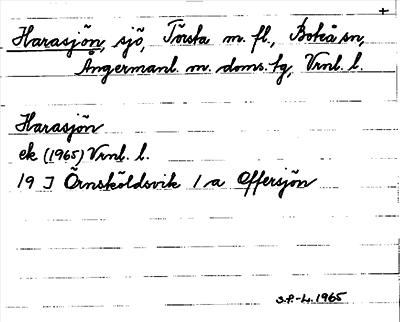 +
Harasjön, sjö, Torsta m. fl., Boteå sn,
Ångermanl. m. doms. tg, Vrnl. l.
Harasjön
ek (1965) Vrnl. l.
19 J Örnsköldsvik 1 a Offersjön
S.P.-L. 1965